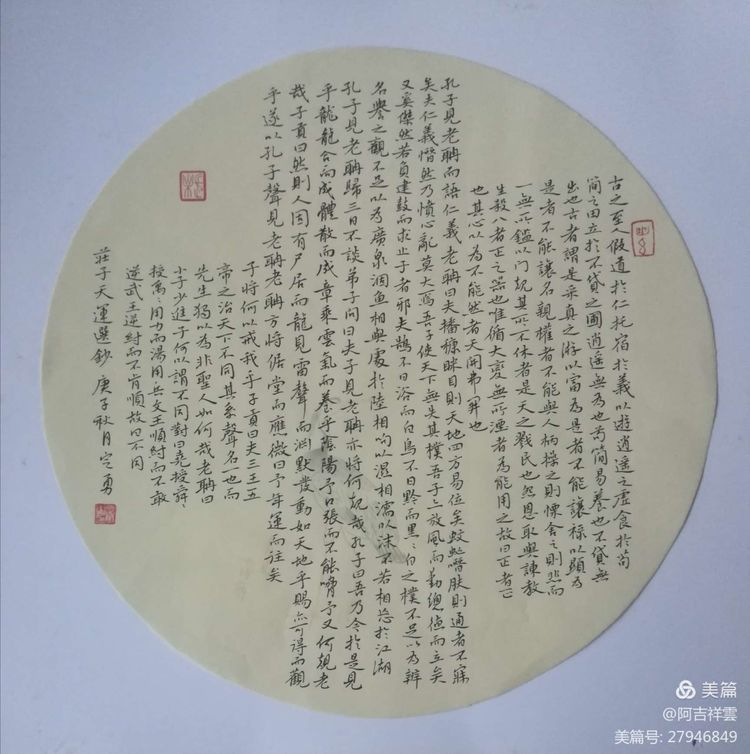 古之至人假道於仁托宿於義以遊逍遥之虚食於苟
简之田立於不貸之圃逍遥無為也苟简易養也不貸無
出也古者謂是采真之游以富為是者不能讓禄以顯為
是者不能讓名親權者不能與人柄操之則慄舍之則悲而
一無所鑑以闚其所不休者是天之戮民也怨恩取與諫教
生殺八者正之器也惟循大變無所湮者為能用之故曰正者正
也其心以為不能然者天門弗開也
孔子見老聃而語仁義老聃曰夫播糠眯目則天地四方易位矣蚊虻噆肤則通昔不寐
矣夫仁義憯然乃憤心亂莫大焉吾子使天下無失其樸吾子亦放風而動總德而立矣
又奚傑然若負建鼓而求亡子者邪夫鵠不日浴而白烏不日黔而黑黑白之樸不足以為辯
名譽之觀不足以為廣泉涸魚相與處於陸相呴以濕相濡以沫不若相忘於江湖
孔子見老聃歸三日不談弟子問曰夫子見老聃亦將何規哉孔子曰吾乃今於是見
乎龍龍合而成體散而成章乘雲氣而養乎陰陽予口張而不能嗋予又何規老
哉子貢曰然則人固有尸居而龍見雷聲而淵默發動如天地乎賜亦可得而觀
乎遂以孔子聲見老聃老聃方將倨堂而應微曰予年運而往矣
子將何以戒我乎子貢曰夫三王五
帝之治天下不同其系聲名一也而
先生獨以為非聖人如何哉老聃曰
小子少進子何以謂不同對曰堯授舜舜
授禹禹用力而湯用兵文王順紂而不敢
逆武王逆紂而不肯順故曰不同
莊子天運選鈔 庚子秋月 定勇
美篇
@阿吉祥雲
美篇号: 27946849